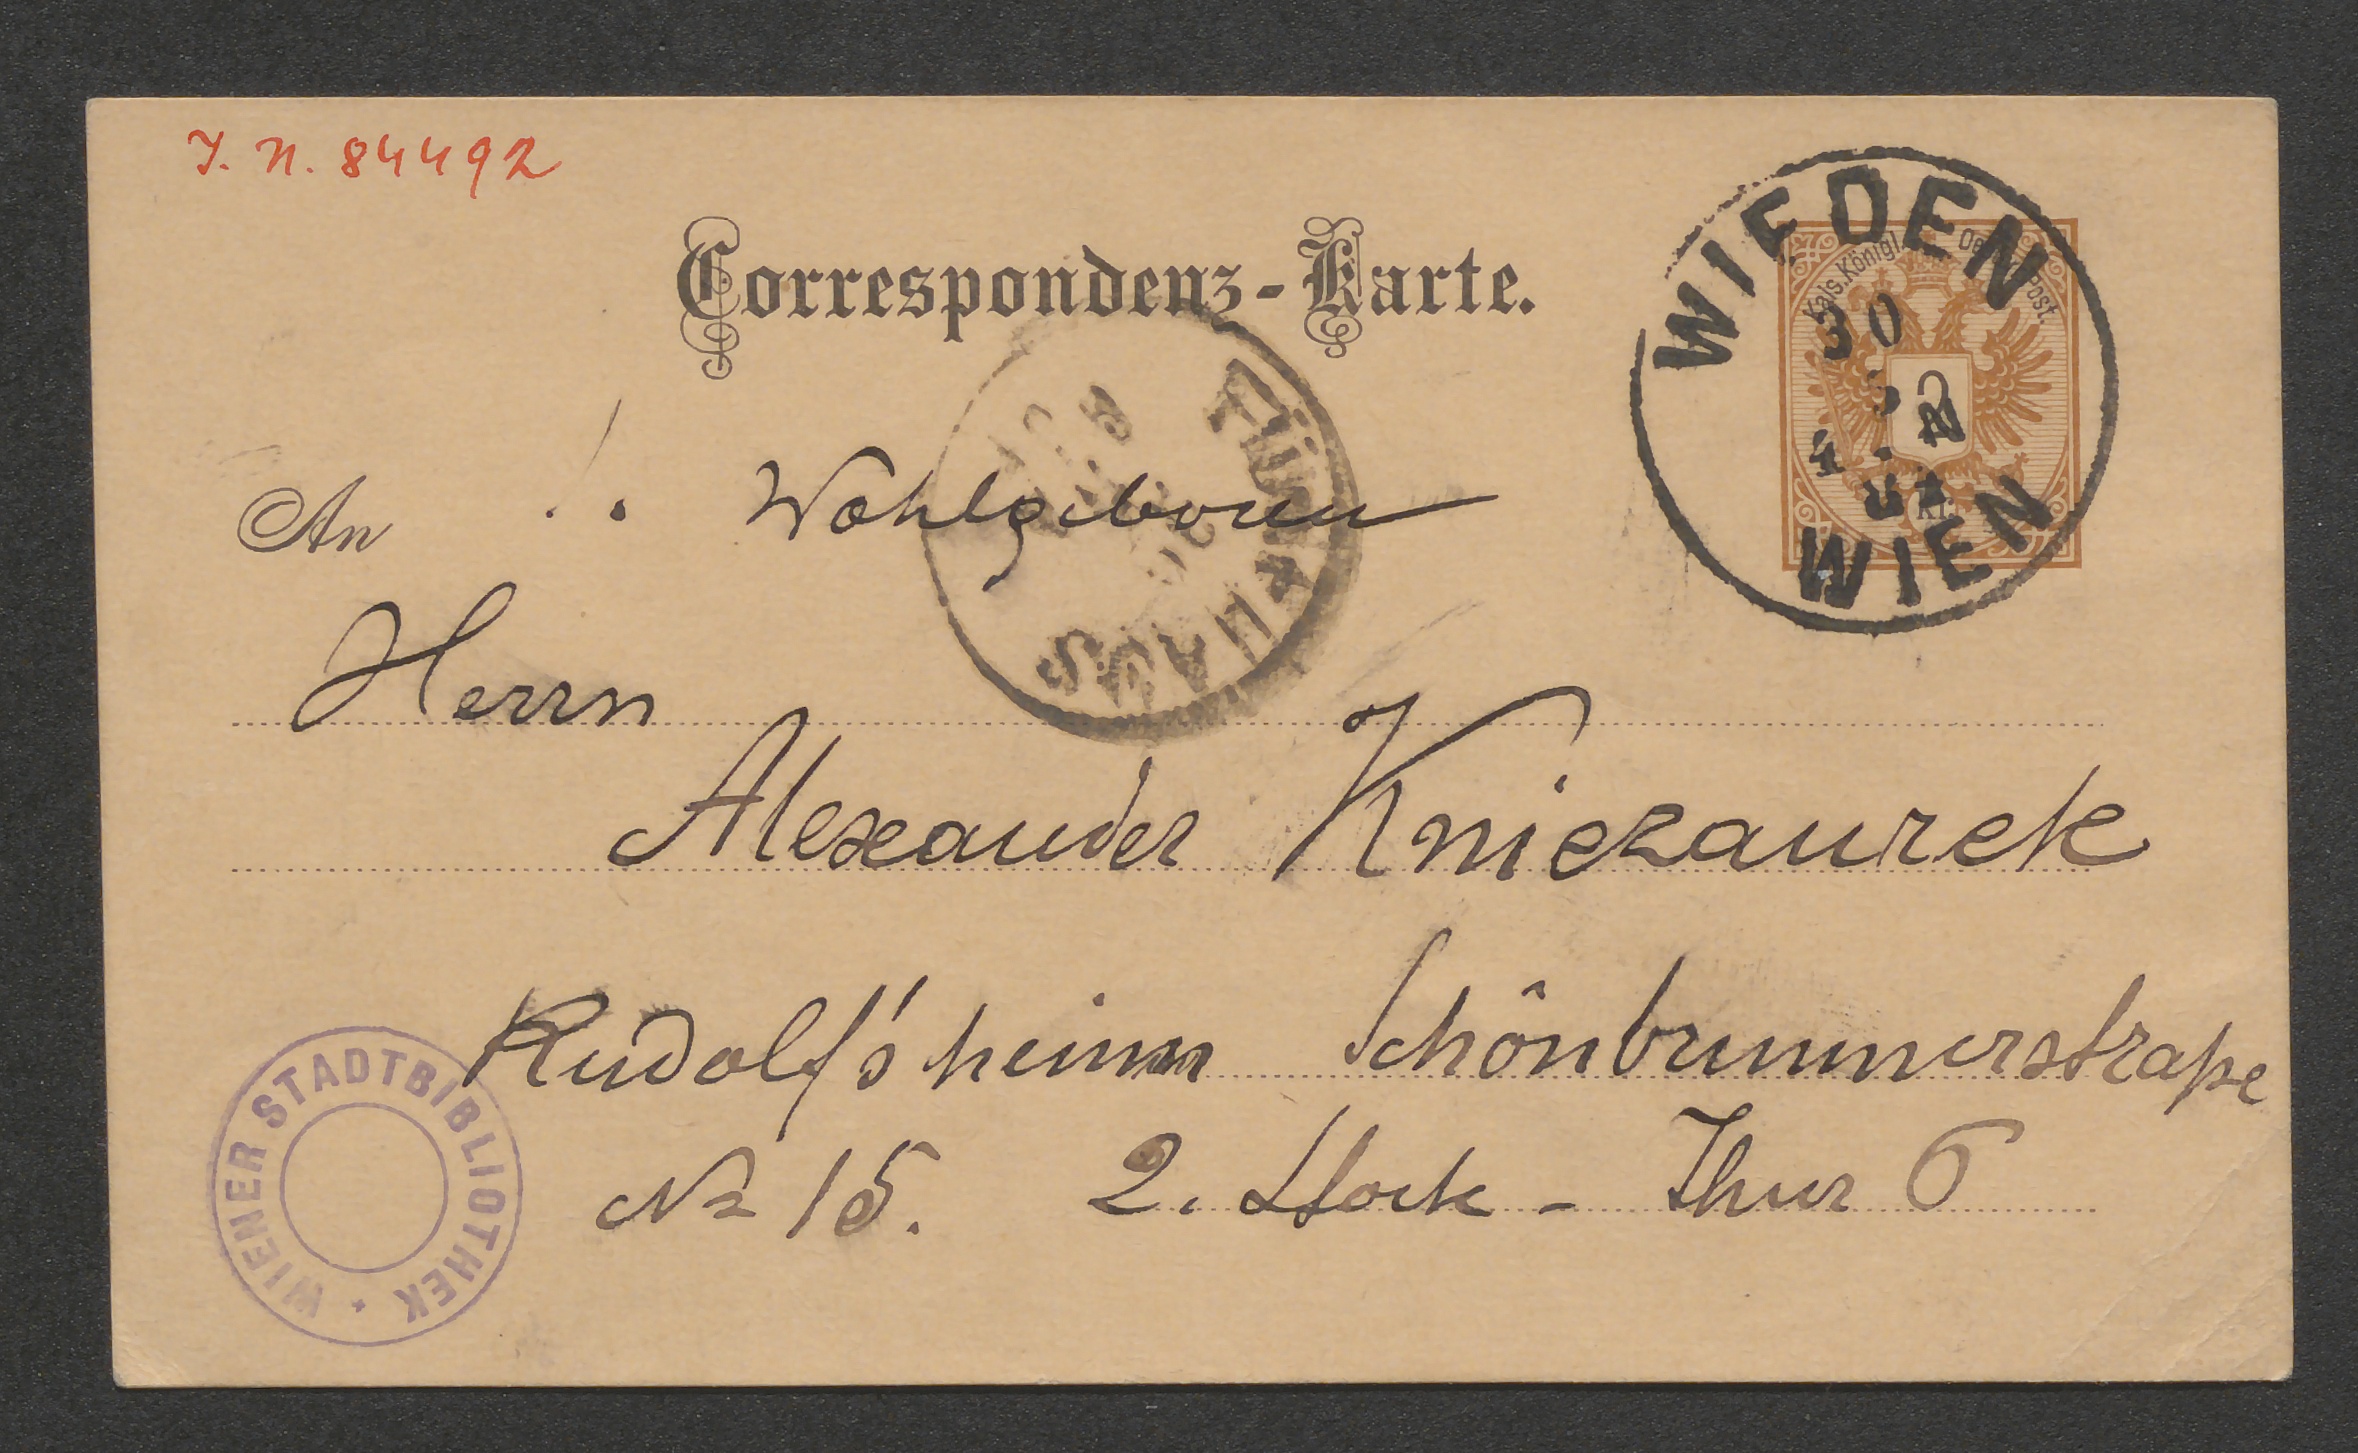 J. N. 84492
Correspondenz-Karte.
WIEDEN
Kais. Königl. Post.
30
2
WIEN
FÜNFHAUS
An Wohlgeboren
Herrn
Alexander Kniezaurek
Rudolf'sheim Schönbrunnerstraße
No 15. 2. Stock - Thür 6
WIENER STADTBIBLIOTHEK